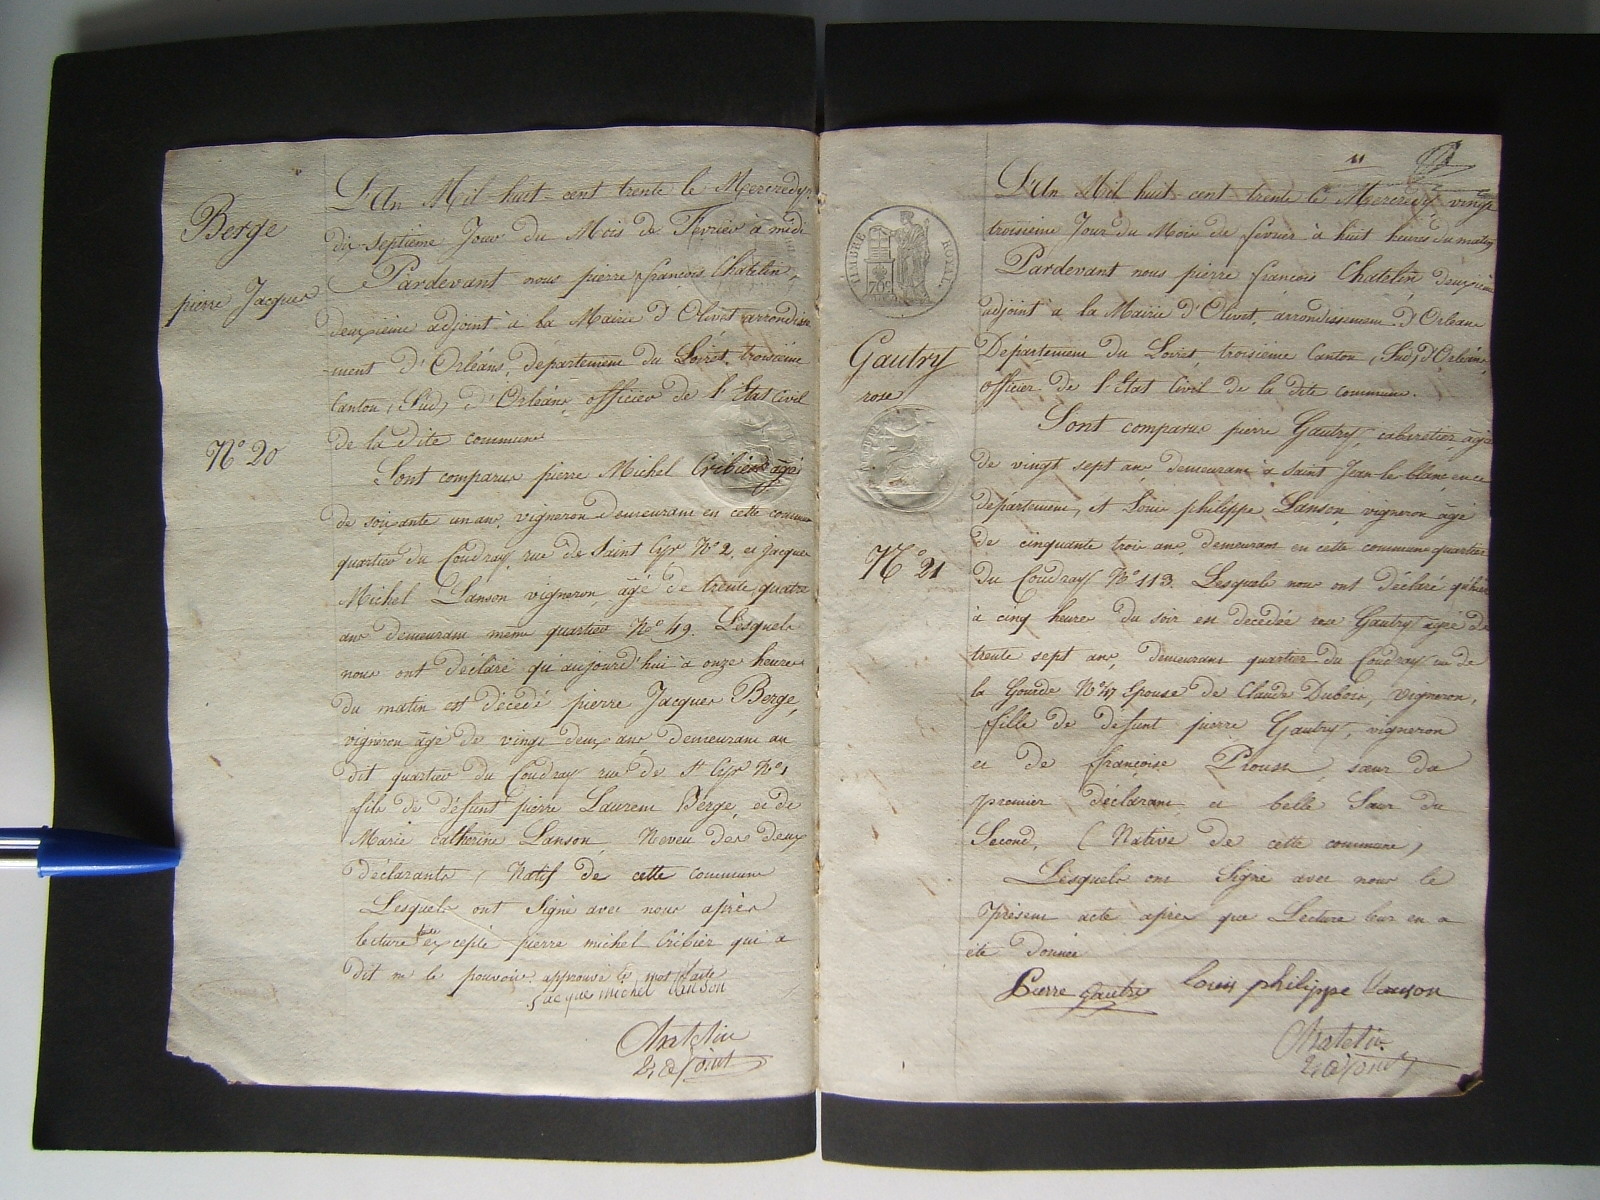 Berge
pierre Jacques
N° 20
L'An Mil huit cent trente le Mercredy
dix septième Jour du Mois de Février à midi
Pardevant nous pierre françois Chatelin
deuxième adjoint à la Mairie d'Olivet arrondisse
ment d'Orléans, département du Loiret, troisième
Canton (Sud) d'Orléans officier de l'Etat Civil
de la dite commune
Sont comparus pierre Michel Cribier âgé
de soixante un ans, vigneron demeurant en cette commune
quartier du Coudray rue de Saint Cyr N° 2, et jacques
Michel Lanson vigneron, âgé de trente quatre
ans demeurant même quartier N° 49. Lesquels
nous ont déclaré qu'aujourd'hui à onze heures
du matin est décédé pierre Jacques Berge,
vigneron âgé de vingt deux ans demeurant au
dit quartier du Coudray rue de St Cyr N° 1
fils de défunt pierre Laurent Berge, et de
Marie Catherine Lanson, Neveu des deux
déclarants, Natif de cette commune
Lesquels ont Signé avec nous après
lecture faite excepté pierre michel Cribier qui a
dit ne le pouvoir approuvé le mot faite
jacque michel lanson
Chatelin
2e adjoint
11
TIMBRE ROYAL
70c
Gautry
rose
N° 21
L'An Mil huit cent trente le Mercredy vingt
troisième Jour du Mois de février à huit heures du matin
Pardevant nous pierre françois Chatelin deuxième
adjoint à la Mairie d'Olivet, arrondissement d'Orléans
Département du Loiret troisième Canton (Sud) d'Orléans,
officier de l'Etat Civil de la dite commune.
Sont comparus pierre Gautry, cabaretier âgé
de vingt sept ans, demeurant à Saint Jean le blanc en ce
département, et Louis philippe Lanson vigneron âgé
de cinquante trois ans, demeurant en cette commune quartier
du Coudray N° 113. Lesquels nous ont déclaré qu'hier
à cinq heures du soir est décédée rose Gautry âgée de
trente sept ans, demeurant quartier du Coudray rue de
la Gouède N° 47 Epouse de Claude Dubois, vigneron,
fille de défunt pierre Gautry, vigneron
et de françoise Proust, sœur du
premier déclarant et belle Sœur du
Second, (Native de cette commune)
Lesquels ont Signé avec nous le
présent acte après que Lecture leur en a
été donnée
Pierre Gautry louis philippe lanson
Chatelin
2e adjoint